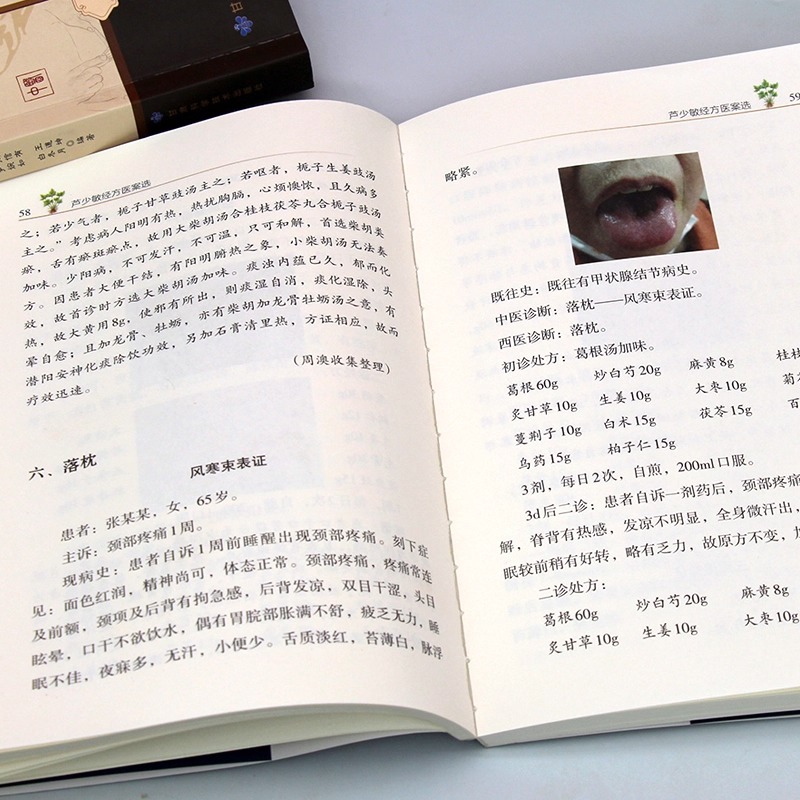 58 芦少敏经方医案选
之；若少气者，栀子甘草豉汤主之；若呕者，栀子生姜豉汤
主之。”考虑病人阳明有热，热扰胸膈，心烦懊憹，且久病多
瘀，舌有瘀斑瘀点，故用大柴胡汤合桂枝茯苓九合栀子豉汤
加味。少阳病，不可发汗，不可温，只可和解，首选柴胡类
方。因患者大便干结，有阳明腑热之象，小柴胡汤无法奏
效，故首诊时方选大柴胡汤加味。痰浊内蕴已久，郁而化
热，故大黄用8g，使邪有所出，则痰湿自消，痰化湿除，头
晕自愈；且加龙骨、牡蛎，亦有柴胡加龙骨牡蛎汤之意，有
潜阳安神化痰除饮功效，另加石膏清里热，方证相应，故而
疗效迅速。
（周溴收集整理）
六、落枕
风寒束表证
患者：张某某，女，65岁。
主诉：颈部疼痛1周。
现病史：患者自诉1周前睡醒出现颈部疼痛。刻下症
见：面色红润，精神尚可，体态正常。颈部疼痛，疼痛常连
及前额，颈项及后背有拘急感，后背发凉，双目干涩，头目
眩晕，口干不欲饮水，偶有胃脘部胀满不舒，疲乏无力，睡
眠不佳，夜寐多，无汗，小便少。舌质淡红，苔薄白，脉浮
芦少敏经方医案选 59
略紧。
既往史：既往有甲状腺结节病史。
中医诊断：落枕——风寒束表证。
西医诊断：落枕。
初诊处方：葛根汤加味。
葛根60g 炒白芍20g 麻黄8g 桂枝
炙甘草10g 生姜10g 大枣10g 菊
蔓荆子10g 白术15g 茯苓15g 百
乌药15g 柏子仁15g
3剂，每日2次，自煎，200ml口服。
3d后二诊：患者自诉一剂药后，颈部疼痛
解，脊背有热感，发凉不明显，全身微汗出，
眠较前稍有好转，略有乏力，故原方不变，加
二诊处方：
葛根60g 炒白芍20g 麻黄8g
炙甘草10g 生姜10g 大枣10g